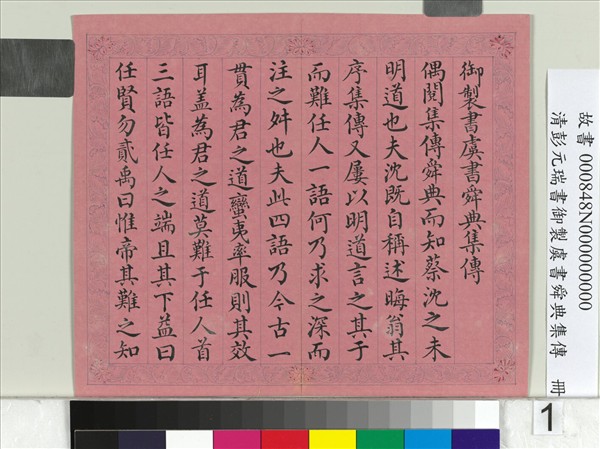 御製書虞書舜典集傳
偶閱集傳舜典而知蔡沈之未
明道也夫沈既自稱述晦翁其
序集傳又屢以明道言之其于
而難任人一語何乃求之深而
注之舛也夫此四語乃今古一
貫為君之道蠻夷率服則其效
耳盖為君之道莫難于任人首
三語皆任人之端且其下益曰
任賢勿貳禹曰惟帝其難之知
故書 000848N000000000
清彭元瑞書御製虞書舜典集傳 冊
1